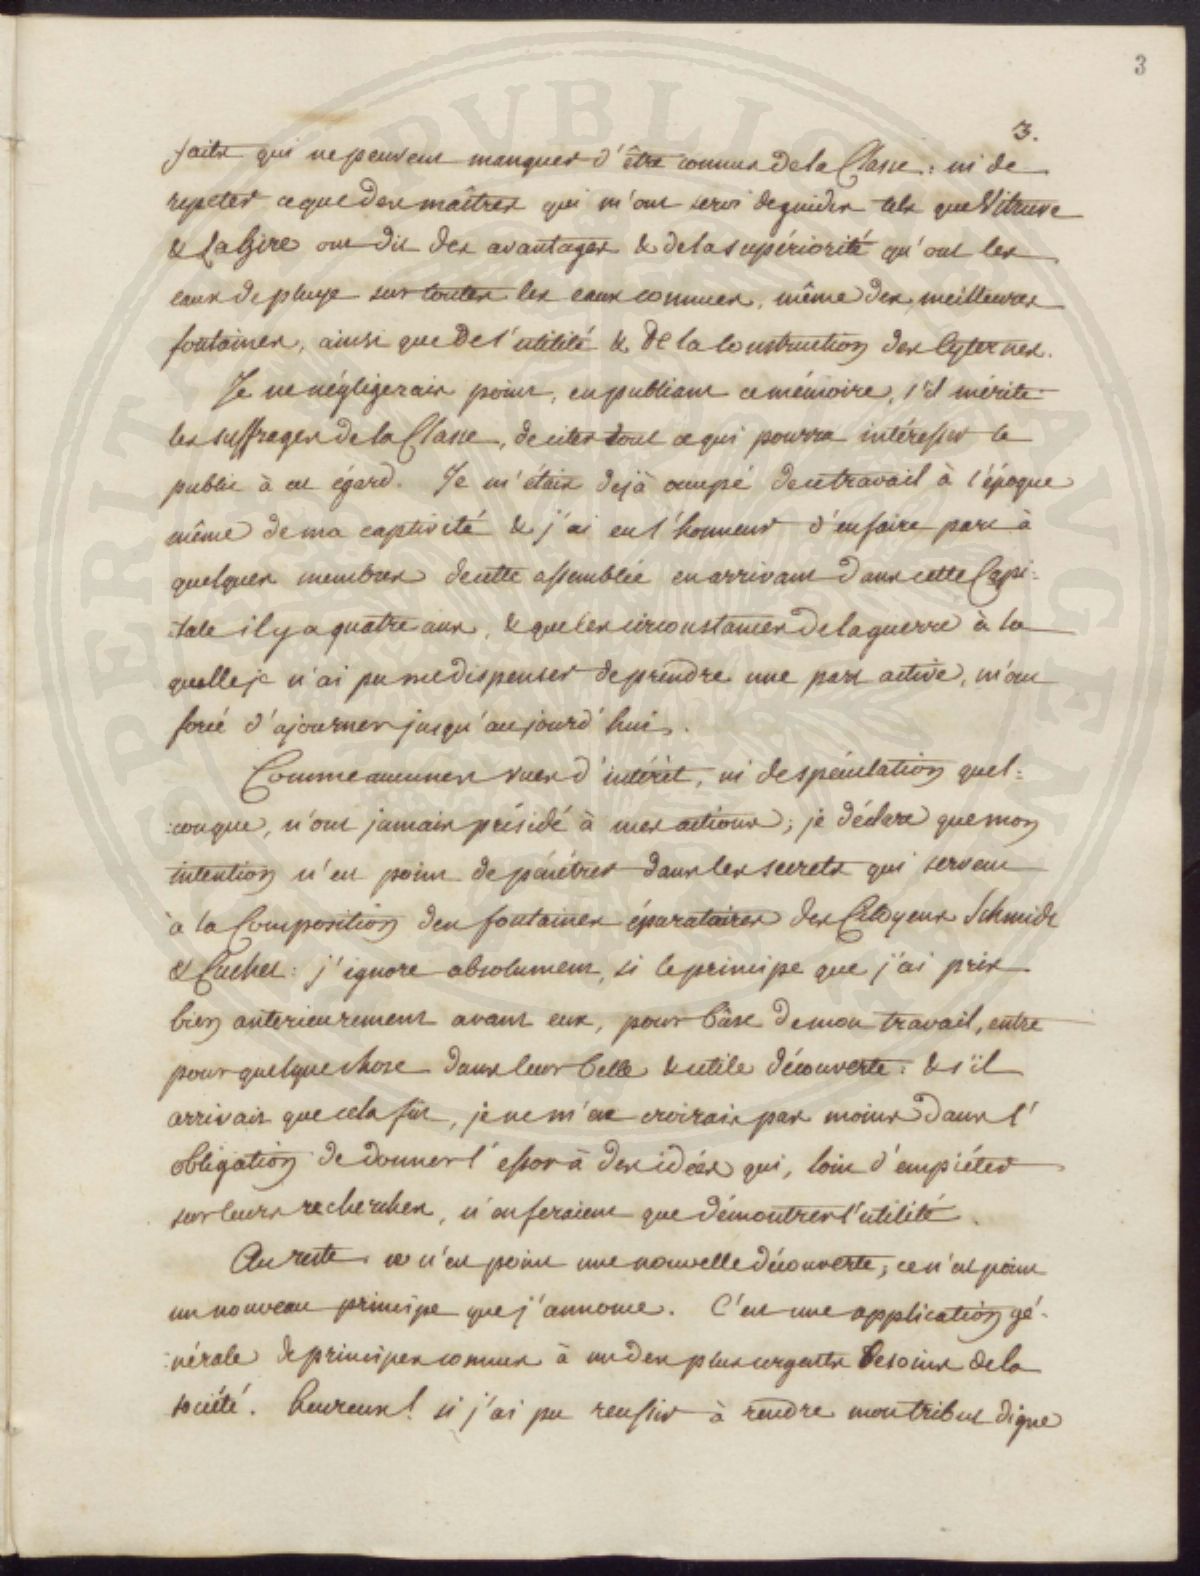 3
3.
faits qui ne peuvent manquer d'être connus de la Classe: ni de
repeter ce que des maîtres qui m'ont servi de guides tels que Vitruve
& La hire ont dit des avantages & de la supériorité qu'ont les
eaux de pluye sur toutes les eaux connues, même des meilleures
fontaines, ainsi que de l'utilité & de la construction des Cyternes.
Je ne négligerais point, en publiant ce mémoire, s'il mérite
les suffrages de la Classe, de citer tout ce qui pourra intéresser le
public à cet égard. Je m'étais dejà occupé de ce travail à l'époque
même de ma captivité & j'ai eu l'honneur d'en faire part à
quelques membres de cette assemblée en arrivant dans cette Capi-
:tale il y a quatre ans, & que les circonstances de la guerre à la
quelle je n'ai pu me dispenser de prendre une part active, m'ont
forcé d'ajourner jusqu'aujourd'hui.
Comme aucunes vues d'intérêt, ni de spéculation quel:
:conque, n'ont jamais présidé à mes actions; je déclare que mon
intention n'est point de pénétrer dans les secrets qui servent
à la Composition des fontaines épuratoires des Citoyens Schmidt
& Cuchet: j'ignore absolument, si le principe que j'ai pris
bien anterieurement avant eux, pour bâse de mon travail, entre
pour quelque chose dans leur belle & utile découverte: & s'il
arrivait que cela fût, je ne m'en croirais pas moins dans l'
obligation de donner l'essor à des idées qui, loin d'empiéter
sur leurs recherches, n'en feraient que démontrer l'utilité.
Au reste ce n'est point une nouvelle découverte; ce n'est point
un nouveau principe que j'annonce. C'est une application gé-
:nérale de principes connus à un des plus urgents besoins de la
société. heureux! si j'ai pu reussir à rendre mon tribut digne